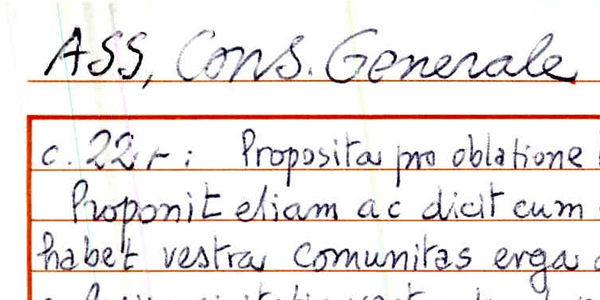 ASS, Cons. Generale
c. 22r: Proposita pro oblatione
Proponit etiam ac dicit cum
habet vestra comunitas erga